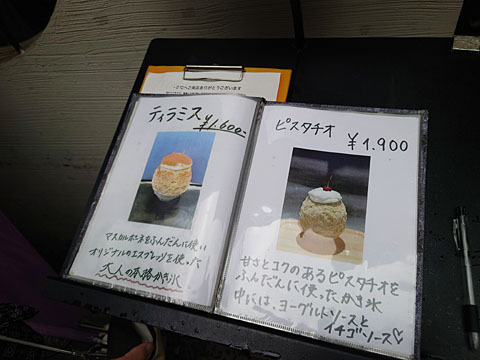 ご来店ありがとうございます
ティラミス
¥1.600-
マスカルポーネをふんだんに使い
オリジナルのエスプレッソを使った
大人の本格かき氷
ピスタチオ
¥1.900
甘さとコクのあるピスタチオを
ふんだんに使ったかき氷
中には、ヨーグルトソースと
イチゴソース♡